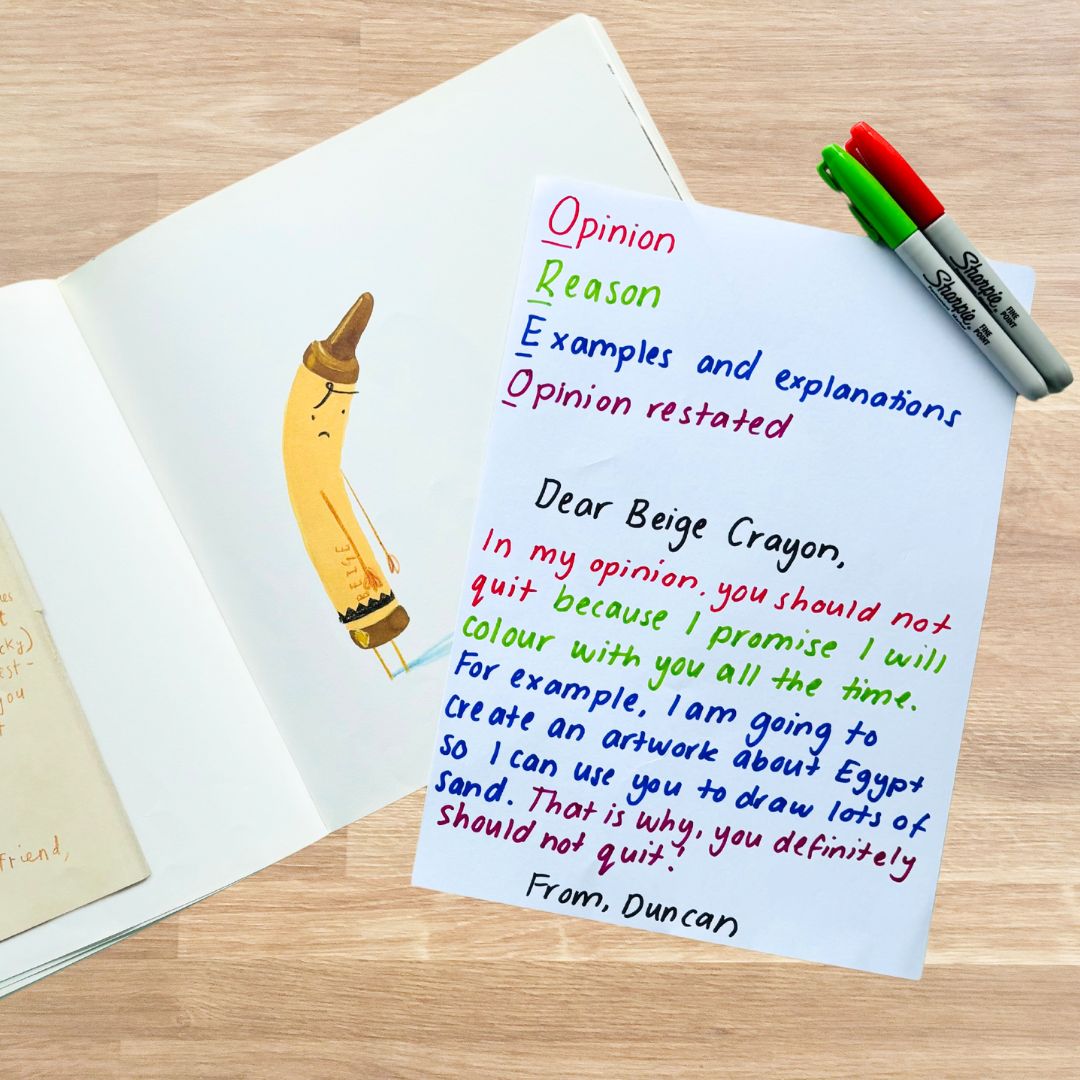 Opinion
Reason
Examples and explanations
Opinion restated
Dear Beige Crayon,
In my opinion. you should not
quit because I promise I will
colour with you all the time.
For example, I am going to
create an artwork about Egypt
so I can use you to draw lots of
sand. That is why, you definitely
should not quit!
From, Duncan
Sharpie.
FINE
POINT
Sharpie.
FINE
POINT
BEIGE
cky)
est-
you
friend,